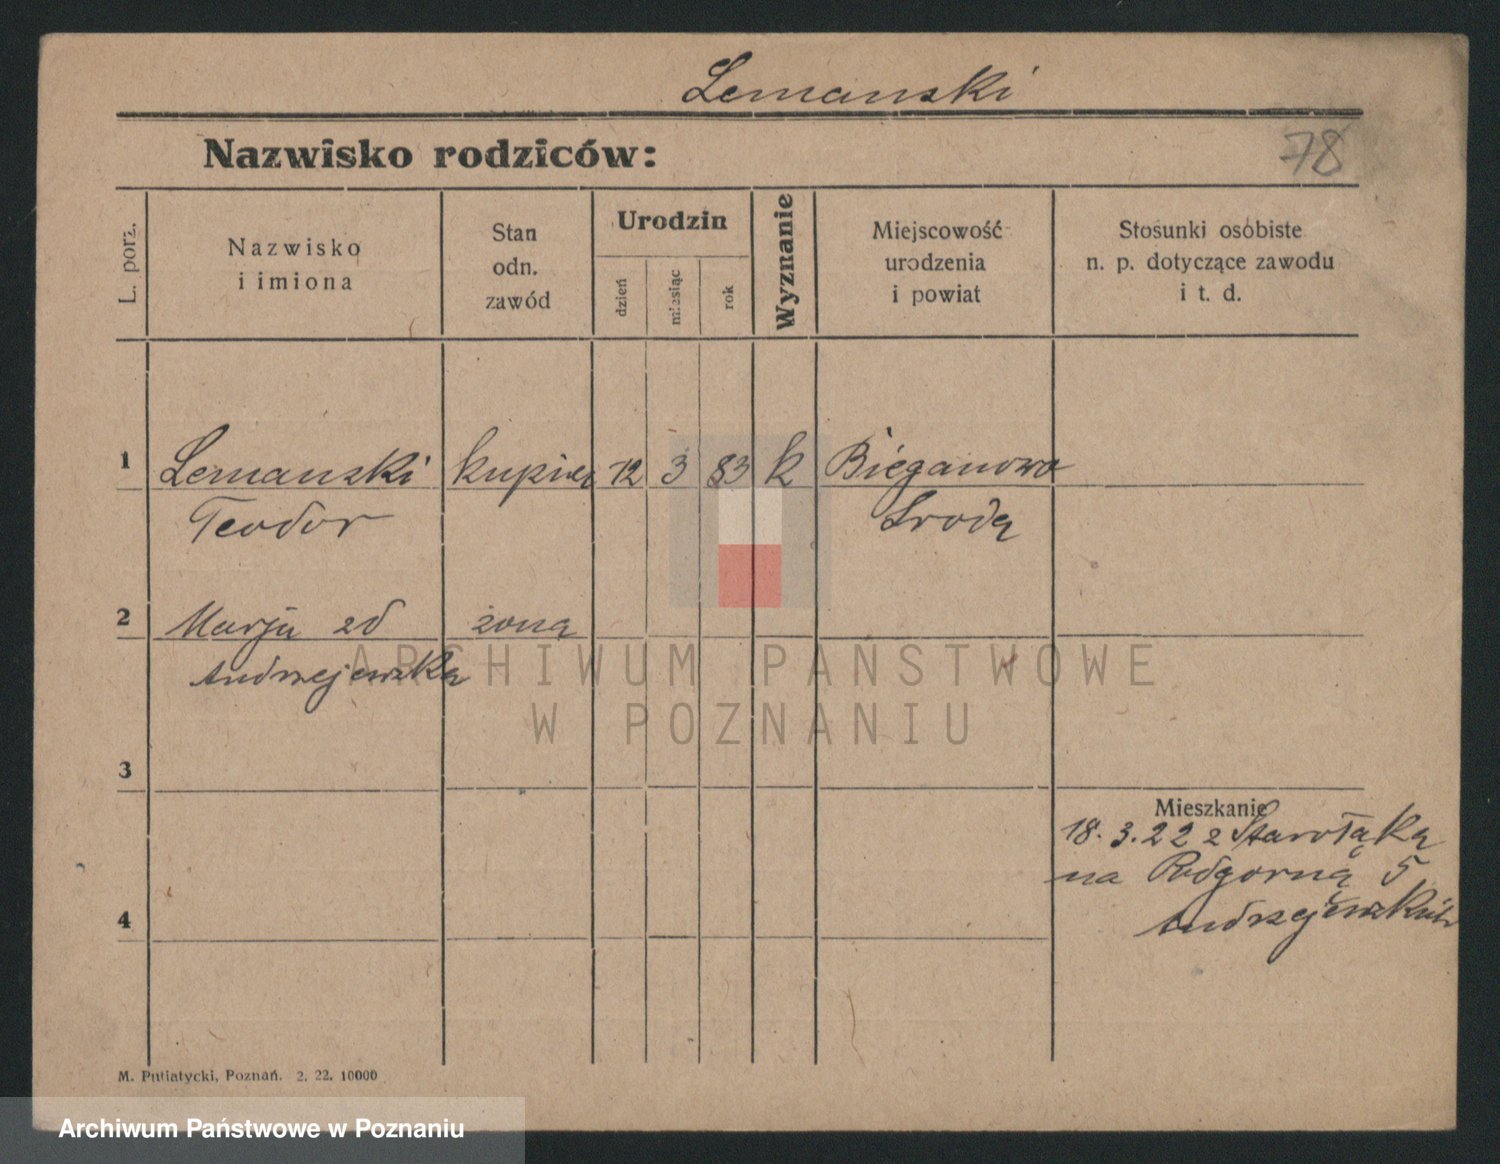 Lemanski
Nazwisko rodziców:
78
L. porz.
Nazwisko
i imiona
Stan
odn.
zawód
Urodzin
dzień
miesiąc
rok
Wyznanie
Miejscowość
urodzenia
i powiat
Stosunki osobiste
n. p. dotyczące zawodu
i t. d.
1 Lemanski kupiec 12 3 83 k Bieganowo
Teodor Środa
2 Marja zd żona
Andrzejewska
ARCHIWUM PAŃSTWOWE
W POZNANIU
3
Mieszkanie
18. 3. 22 z Starołąka
na Podgorną 5
4
M. Putiatycki, Poznań. 2. 22. 10000
Archiwum Państwowe w Poznaniu